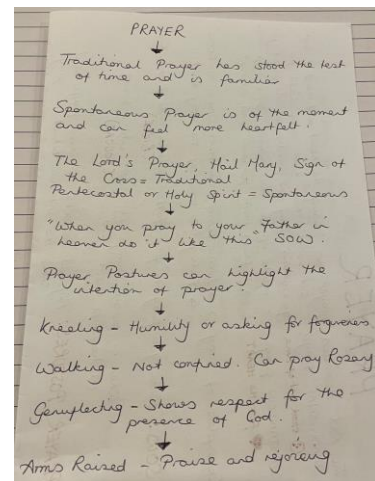 PRAYER
↓
Traditional Prayer has stood the test
of time and is familiar
↓
Spontaneous Prayer is of the moment
and can feel more heartfelt.
↓
The Lord's Prayer, Hail Mary, Sign of
the Cross = Traditional
Pentecostal or Holy Spirit = Spontaneous
↓
"When you pray to your Father in
heaven do it like this" SOW.
↓
Prayer Postures can highlight the
intention of prayer.
↓
Kneeling - Humility or asking for forgiveness
↓
Walking - Not confined. Can pray Rosary
↓
Genuflecting - Shows respect for the
presence of God.
↓
Arms Raised - Praise and rejoicing